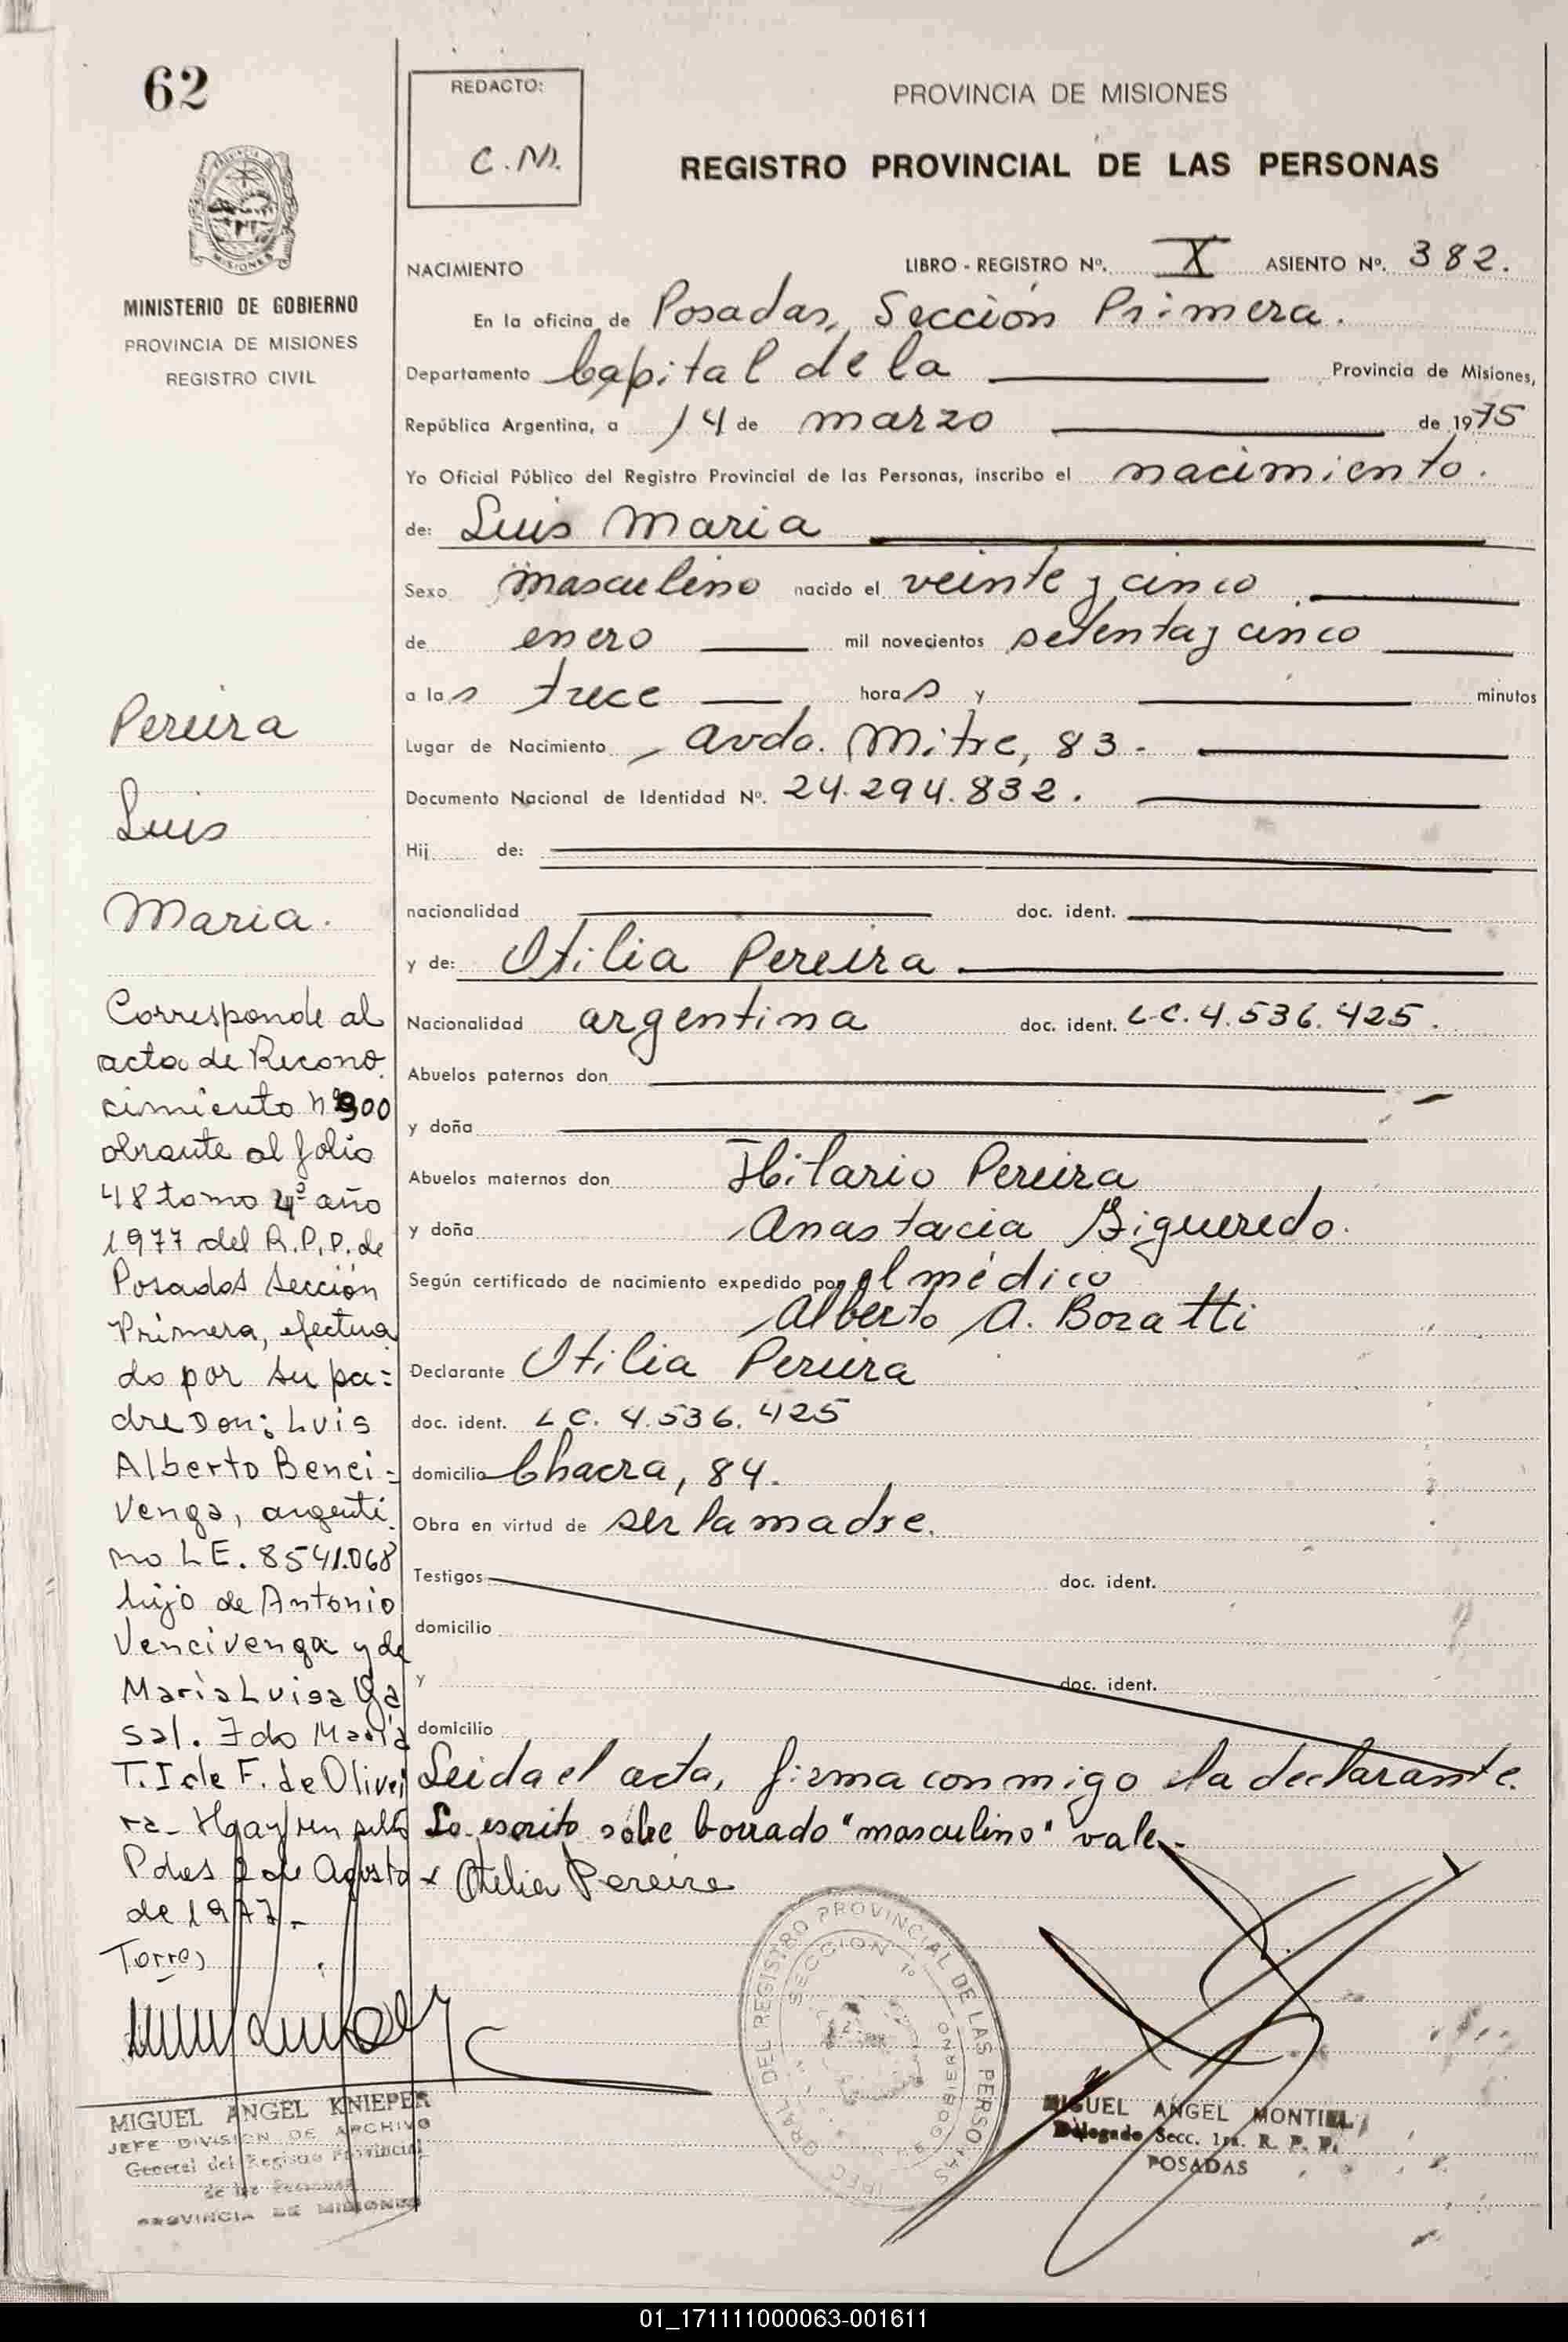 62
MINISTERIO DE GOBIERNO
PROVINCIA DE MISIONES
REGISTRO CIVIL
REDACTO:
C.M.
PROVINCIA DE MISIONES
REGISTRO PROVINCIAL DE LAS PERSONAS
NACIMIENTO LIBRO - REGISTRO Nº. X ASIENTO Nº. 382.
En la oficina de Posadas, Sección Primera.
Departamento Capital de la Provincia de Misiones,
República Argentina, a 14 de marzo de 1975
Yo Oficial Público del Registro Provincial de las Personas, inscribo el nacimiento.
de: Luis Maria
Sexo masculino nacido el veinte y cinco
de enero mil novecientos setenta y cinco
a las trece horas y minutos
Lugar de Nacimiento Avda. Mitre, 83.
Documento Nacional de Identidad Nº. 24.294.832.
Hij de:
nacionalidad doc. ident.
y de: Otilia Pereira
Nacionalidad argentina doc. ident. L.C. 4.536.425.
Abuelos paternos don
y doña
Abuelos maternos don Hilario Pereira
y doña Anastacia Figueredo.
Según certificado de nacimiento expedido por el médico
Alberto A. Boratti
Declarante Otilia Pereira
doc. ident. L.C. 4.536.425
domicilio Chacra, 84.
Obra en virtud de ser la madre.
Testigos doc. ident.
domicilio
y doc. ident.
domicilio
Leida el acta, firma conmigo la declarante.
Lo escrito sobre borrado "masculino" vale.-
x Otilia Pereira
Pereira
Luis
Maria.
Corresponde al
acta de Recono
cimiento nº 900
obrante al folio
48 tomo 4º año
1977 del R.P.P. de
Posadas Sección
Primera, efectua
do por su pa=
dre Don: Luis
Alberto Benci=
venga, argenti
no L E. 8541.068
hijo de Antonio
Vencivenga y de
María Luisa
sal. Fdo María
T. I de F. de Olivei
ra- Hay un sello
Pdas 2 de Agosto
de 1977.-
Torres
MIGUEL ANGEL KNIEPER
JEFE DIVISION DE ARCHIVO
General del Registro Provincial
de las Personas
PROVINCIA DE MISIONES
GRAL DEL REGISTRO PROVINCIAL DE LAS PERSONAS
SECCION 1º
GOBIERNO
MIGUEL ANGEL MONTIEL
Delegado Secc. 1ra. R. P. P.
POSADAS
01_171111000063-001611